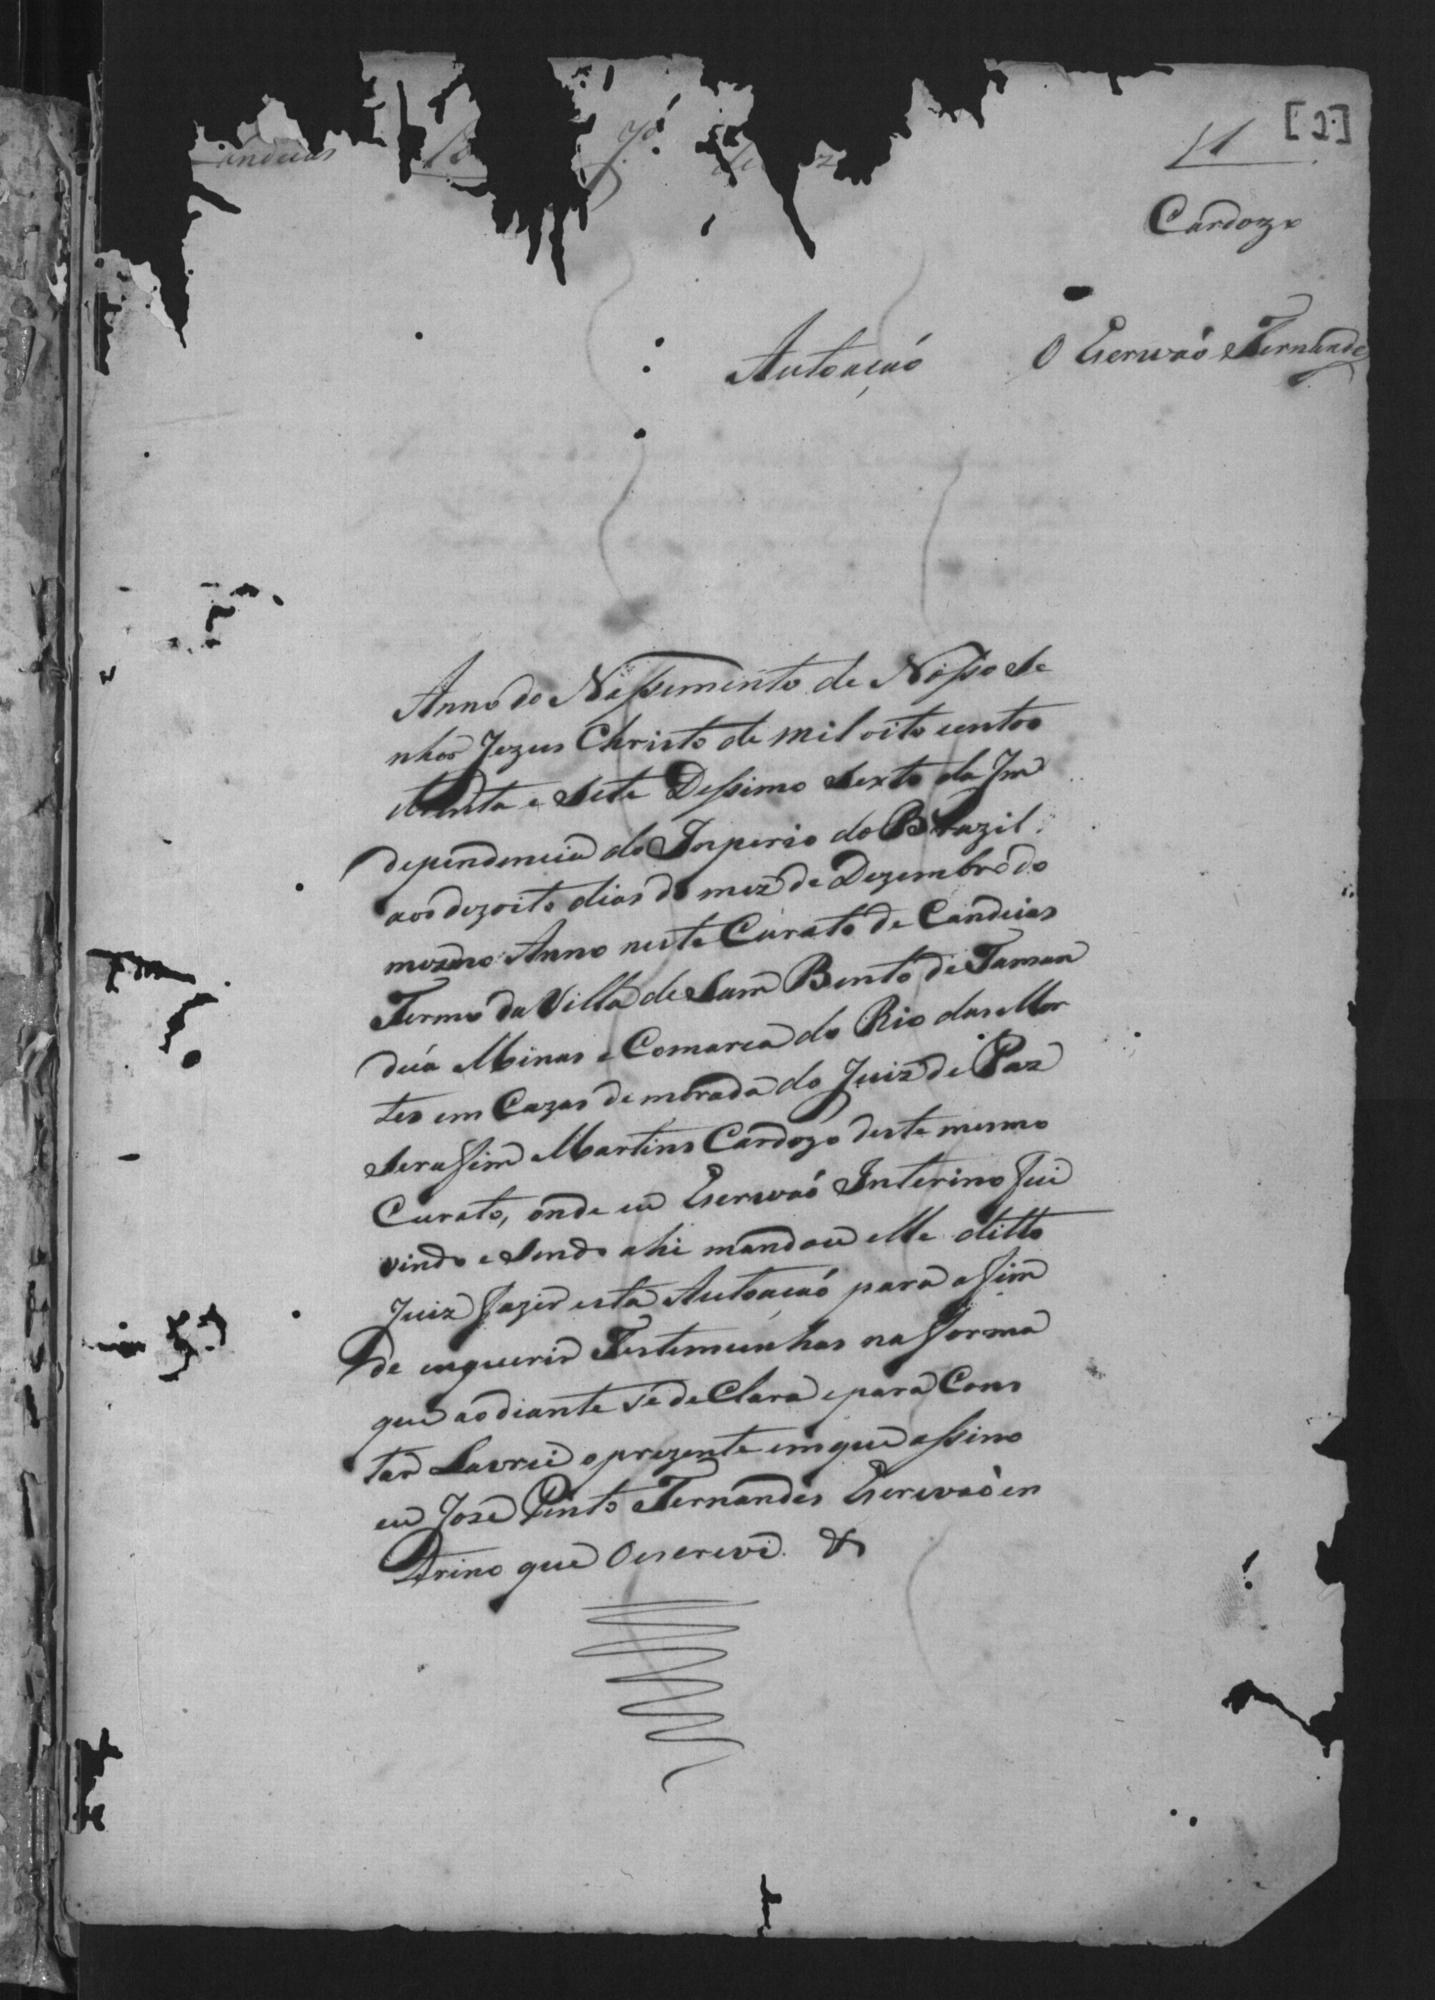 andeias
de
1
[1]
Cardozo
Autoação
O Escrivaõ Fernande
Anno do Nassimento de Nosso Se
nhor Jezus Christo de mil oito centos
trinta e Sete Dessimo Sexto da Im
dependencia do Inperio do Brazil
aos dezoito dias do mez de Dezembro do
mesmo Anno neste Curato de Candeias
Termo da Villa de Sam Bento de Taman
duá Minas e Comarca do Rio das Mor
tes em Cazas de morada do Juiz de Paz
Serafim Martins Cardozo deste mesmo
Curato, onde eu Escrivaõ Interino fui
vindo e Sendo ahi mandou elle ditto
Juiz fazer esta Autoacaó para afim
de enquerir Testemunhas na forma
que ao diante se deClara e para Cons
tar Lavrei o prezente em que assino
eu José Pinto Fernandes Escrivaõ en
trino que O escrevi &